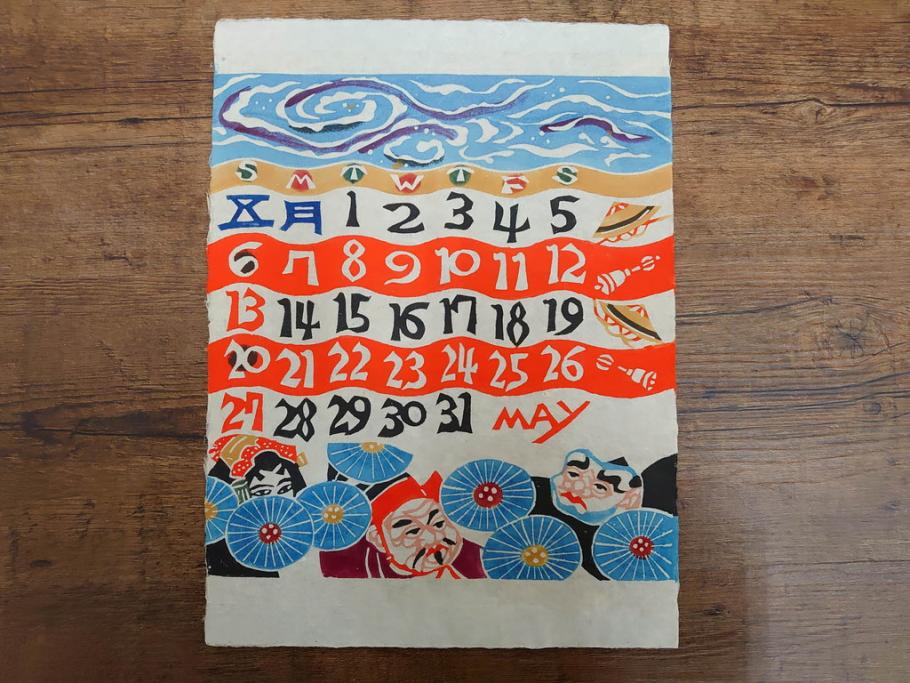 S M T W T F S
五月 1 2 3 4 5
6 7 8 9 10 11 12
13 14 15 16 17 18 19
20 21 22 23 24 25 26
27 28 29 30 31 MAY